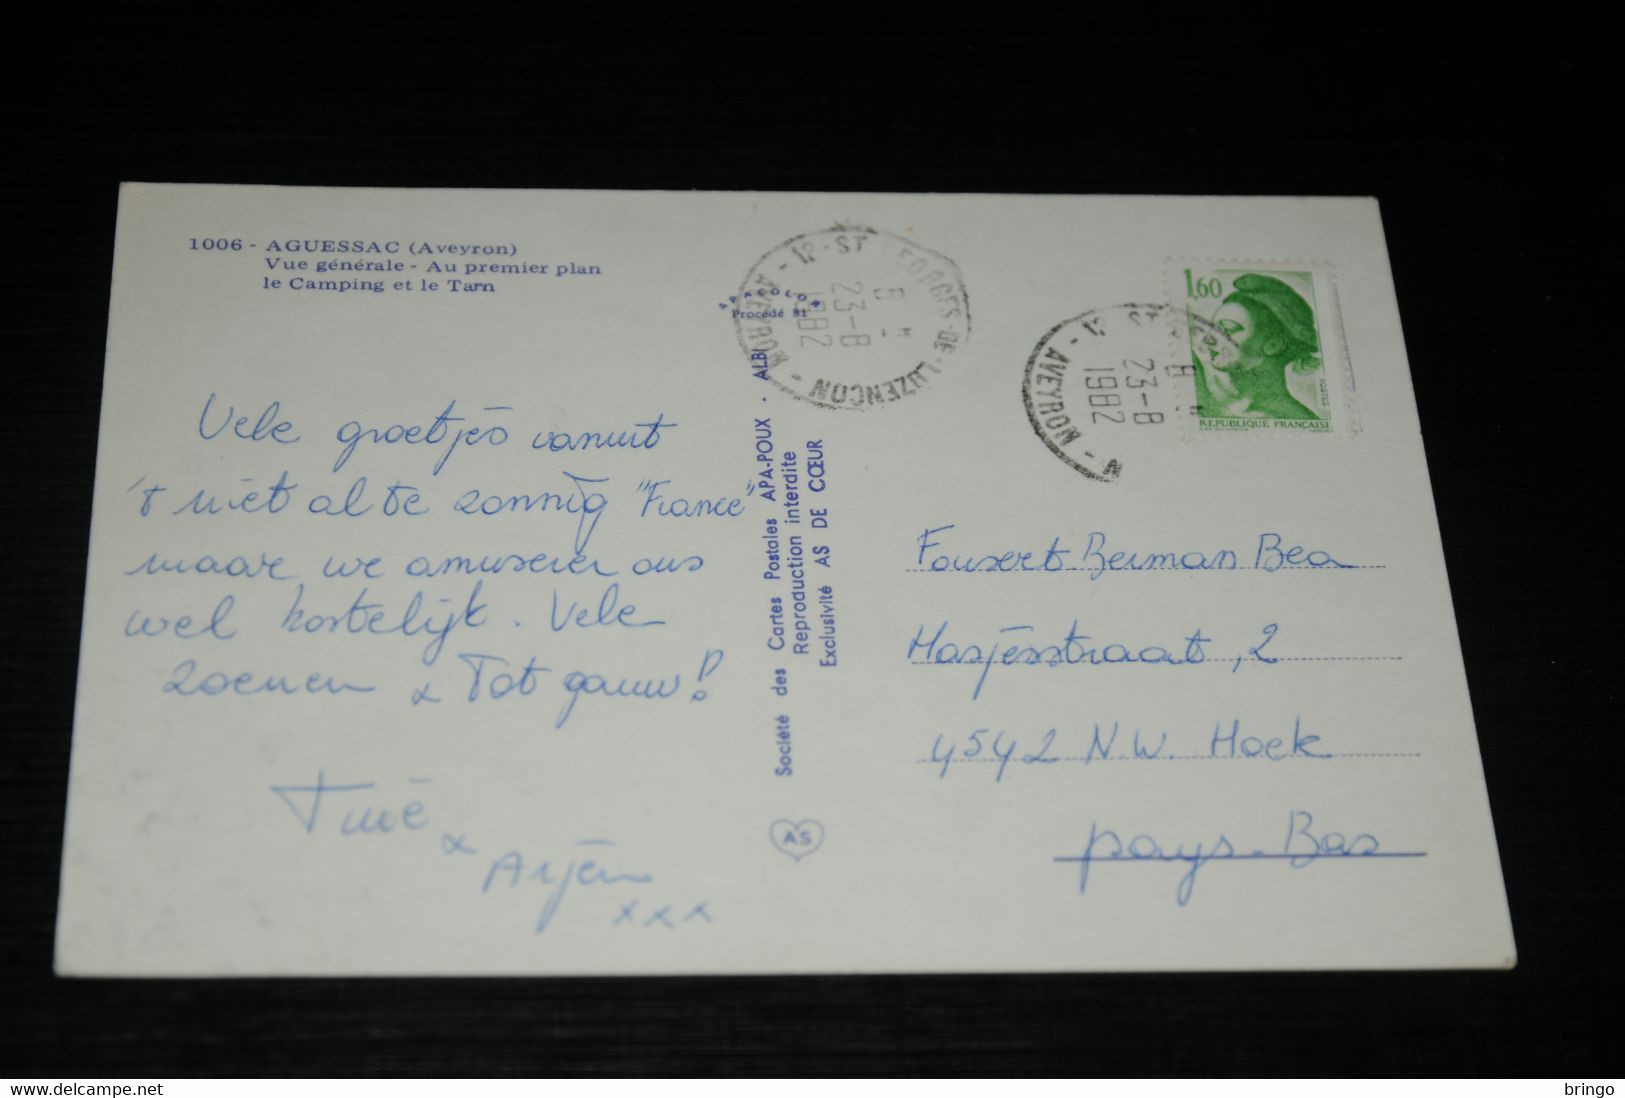 1006 - AGUESSAC (Aveyron)
Vue générale - Au premier plan
le Camping et le Tarn
Procédé 81
12 - ST GEORGES-DE-LUZENCON - AVEYRON -
23-8
1982
12 - ST
- AVEYRON -
23-8
1982
1,60
POSTES
REPUBLIQUE FRANÇAISE
Société des Cartes Postales APA-POUX . ALBI
Reproduction interdite
Exclusivité AS DE CŒUR
AS
Vele groetjes vanuit
't niet al te zonnig "France"
maar we amuseren ons
wel kostelijk. Vele
zoenen & Tot gauw!
&
Arjen
xxx
Fousert-Berman Bea
Hasjesstraat, 2
4542 N.W. Hoek
pays-Bas
bringo